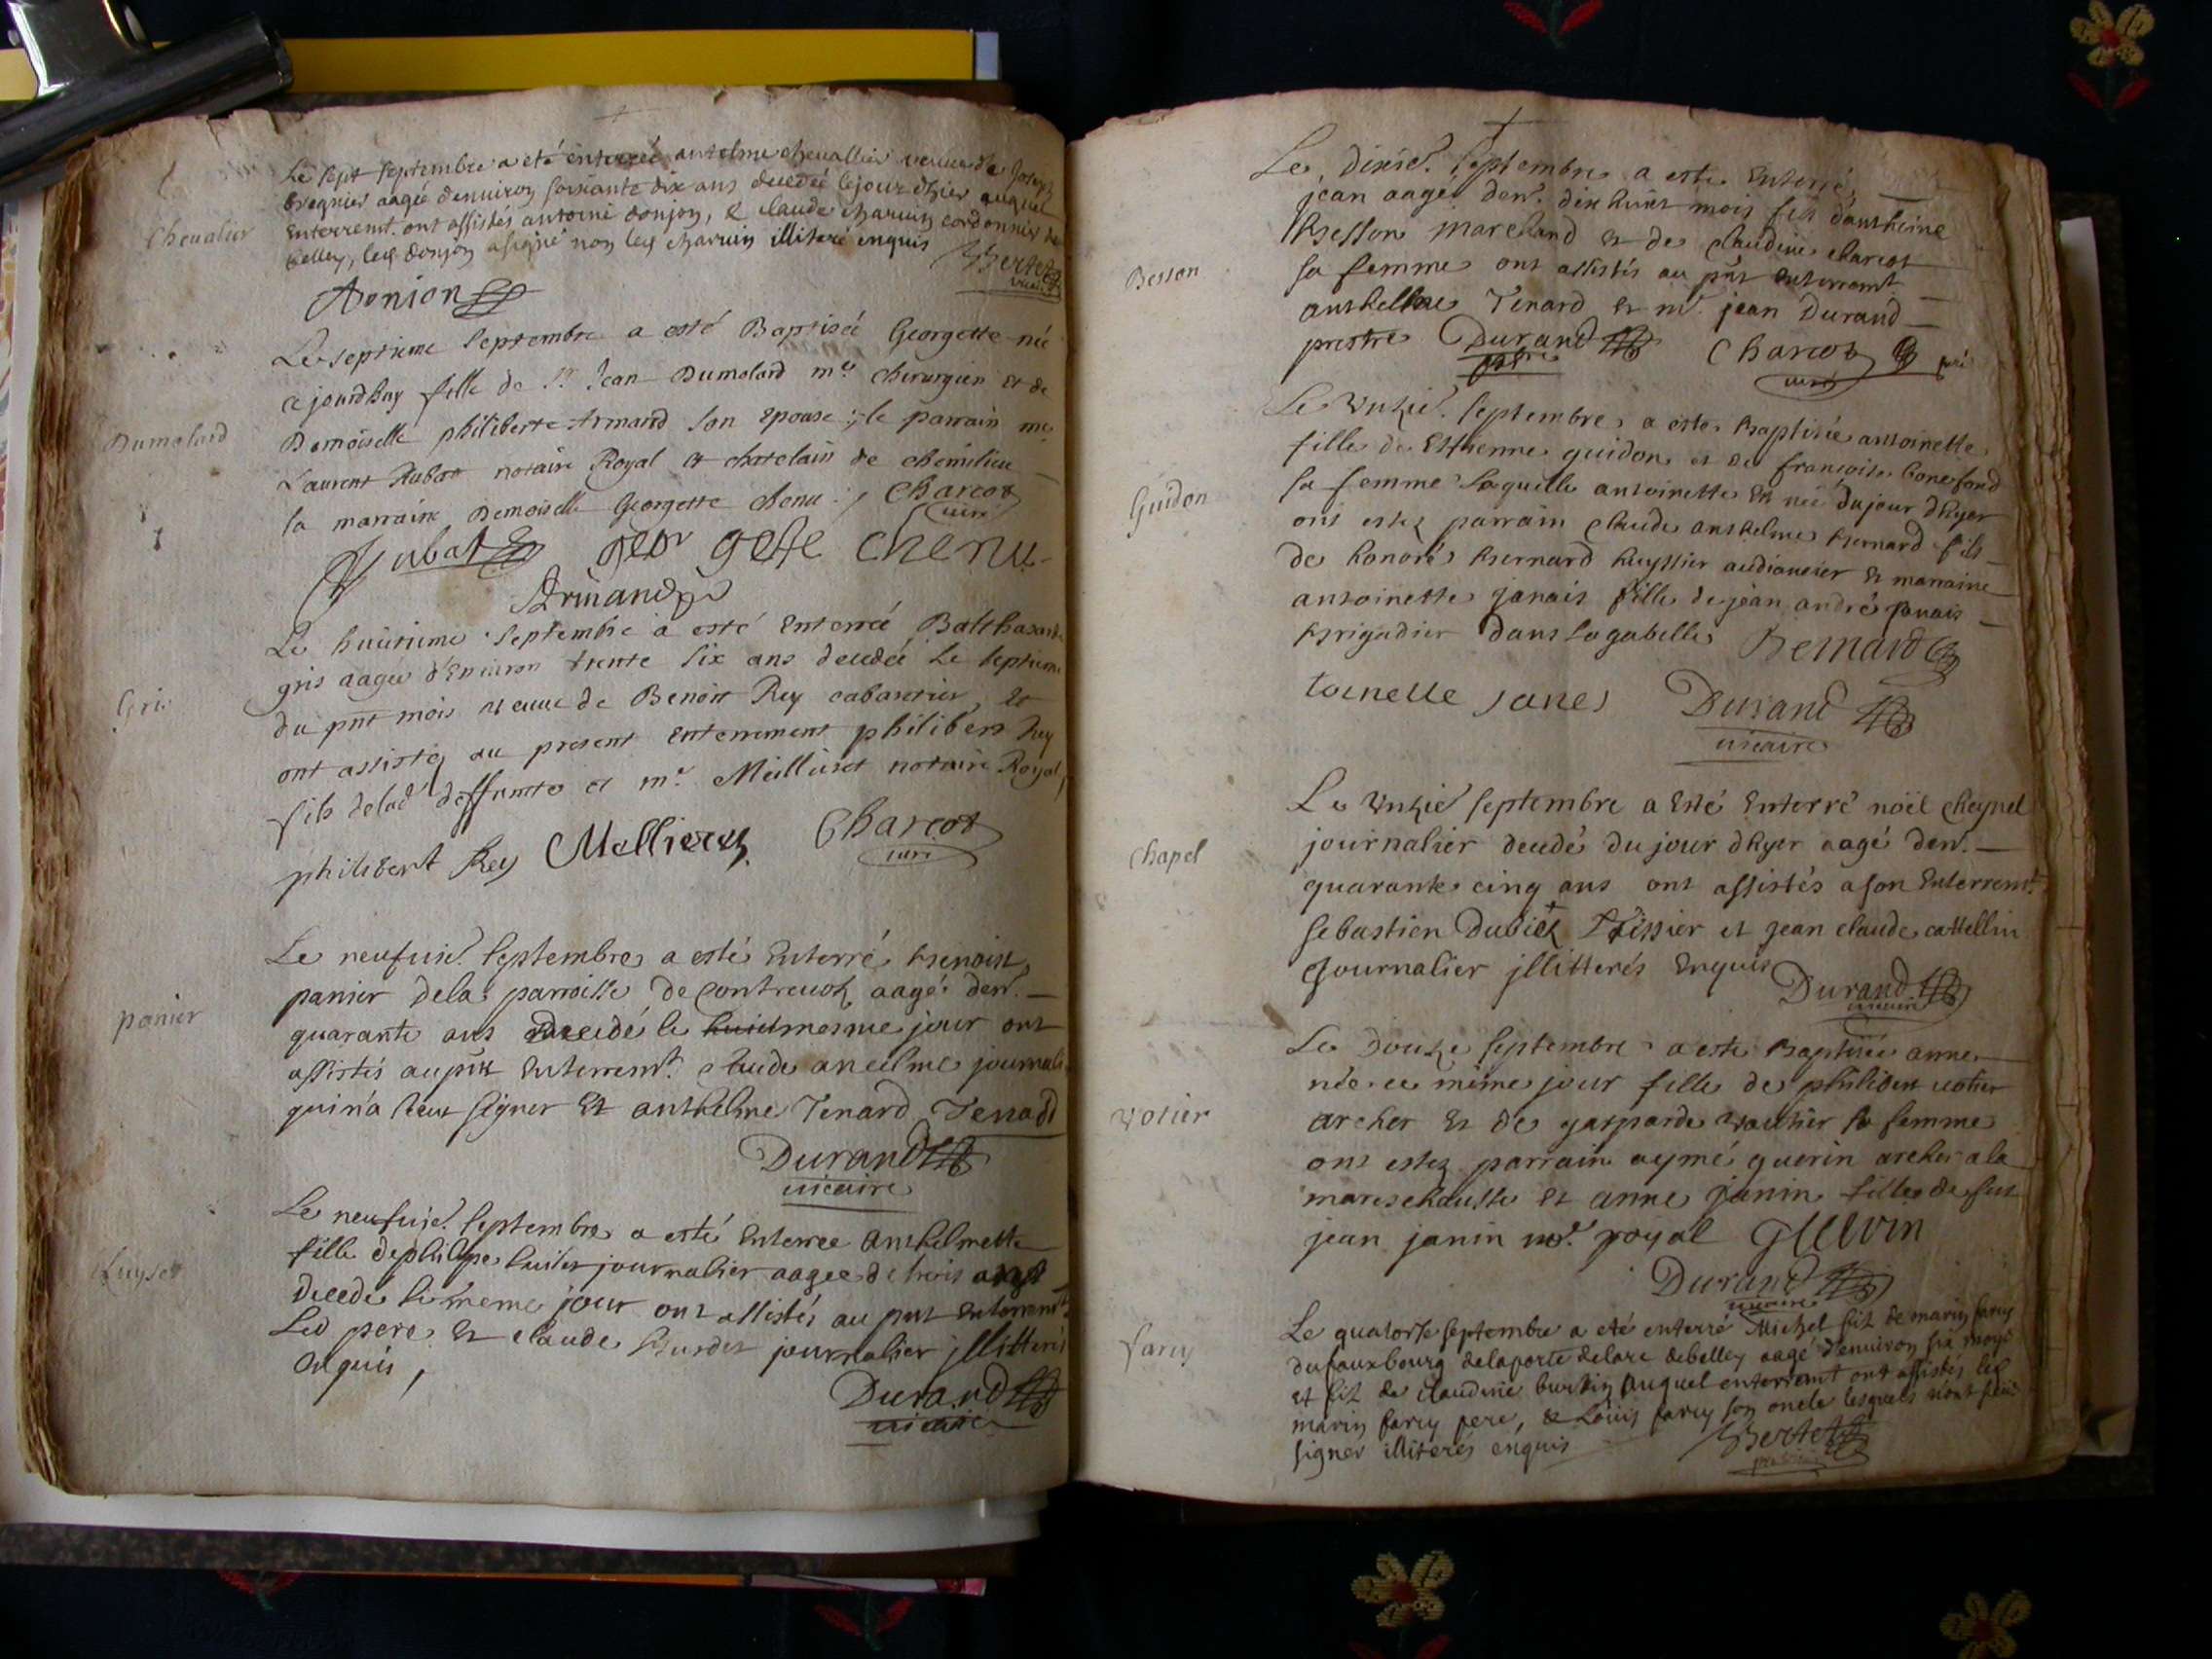 Le sept septembre a eté enterreé antelme chevallier veuve de Joseph
bregnier aagée denuiron soixante dix ans decedeé le jour d'hier auquel
enterremt. ont assistés antoine donjon, & claude charuin cordonnier de
belley, led donjon a signé non led charuin illiteré enquis Bertet
Chevalier
ADonjon
Le septieme septembre a esté Baptisée Georgette née
ce jourdhuy fille de Sr Jean Dumolard me chirurgien et de
Demoiselle philiberte Armand son epouse ; le parrain me
Laurent Rubat notaire Royal et chatelain de chemilieu
la marraine Demoiselle Georgette chenu ; Charcot
curé
Dumolard
Rubat geor gete chenu
Armand
Le huitieme septembre a esté enterrée Balthasarde
gris aagée d'environ trente six ans decedée le septieme
du pnt mois veuve de Benoit Rey cabaretier, et
ont assisté au present enterrement philibert Rey
fils de lad deffunte et me. Meillieret notaire Royal
Gris
philibert Rey Mellieret Charcot
curé
Le neufuie. septembre a esté enterré benoist
panier dela parroisse de contreuoz aagé den. —
quarante ans decedé le mesme jour ont
assistés au pnt enterremt. claude ancelme journali
qui n'a sceu signer et anthelme Tenard Tenard
panier
Durand
uicaire
Le neufuie. septembre a esté enterree anthelmette
fille de philipe luiset journalier aagee de trois ans
decede le meme jour ont assistés au pnt enterremt
Led pere et claude burdet journalier jllitterés
enquis,
Luyset
Durand
uicaire
Le dixie. septembre a esté enterré,
jean aagé den. dix huict mois fils d'antheine
besson marchand et de claudine charcot
sa femme ont assistés au pnt enterremt
anthelme Tenard et mr. jean Durand —
prestre Durand Charcot
curé
Besson
Le unzie. septembre a esté baptisée antoinette
fille de esthienne guidon et de françoise bonefond
sa femme laquelle antoinette est née du jour dhyer
ont estez parrain claude anthelme bernard fils
de honoré bernard huyssier audiancier et marraine
antoinette janais fille de jean andré janais —
brigadier dans la gabelle Bernard
Guidon
toenette janes Durand
uicaire
Le unzie septembre a esté enterré nöel cheynel
journalier decedé du jour dhyer aagé den. —
quarante cinq ans ont assistés a son enterremt
sebastien Dubiez tissier et jean claude cattellin
journalier jllitterés enquis Durand
uicaire
Chapel
Le douze septembre a esté baptisée anne
née ce méme jour fille de philibert uotier
archer et de gasparde vautier sa femme
ont estez parrain aymé guerin archer a la
mareschaussée et anne janin fille de feu
jean janin no. royal guerin
votier
Durand
uicaire
Le quatorse septembre a eté enterré Michel fils de marin farcy
du fauxbourg delaporte delarc de belley aagé denuiron six moys
et fils de claudine burtin auquel enterremt ont assistés led
marin farcy pere, & Louis farcy son oncle lesquels n'ont sceu
signer illiterés enquis Bertet
farcy